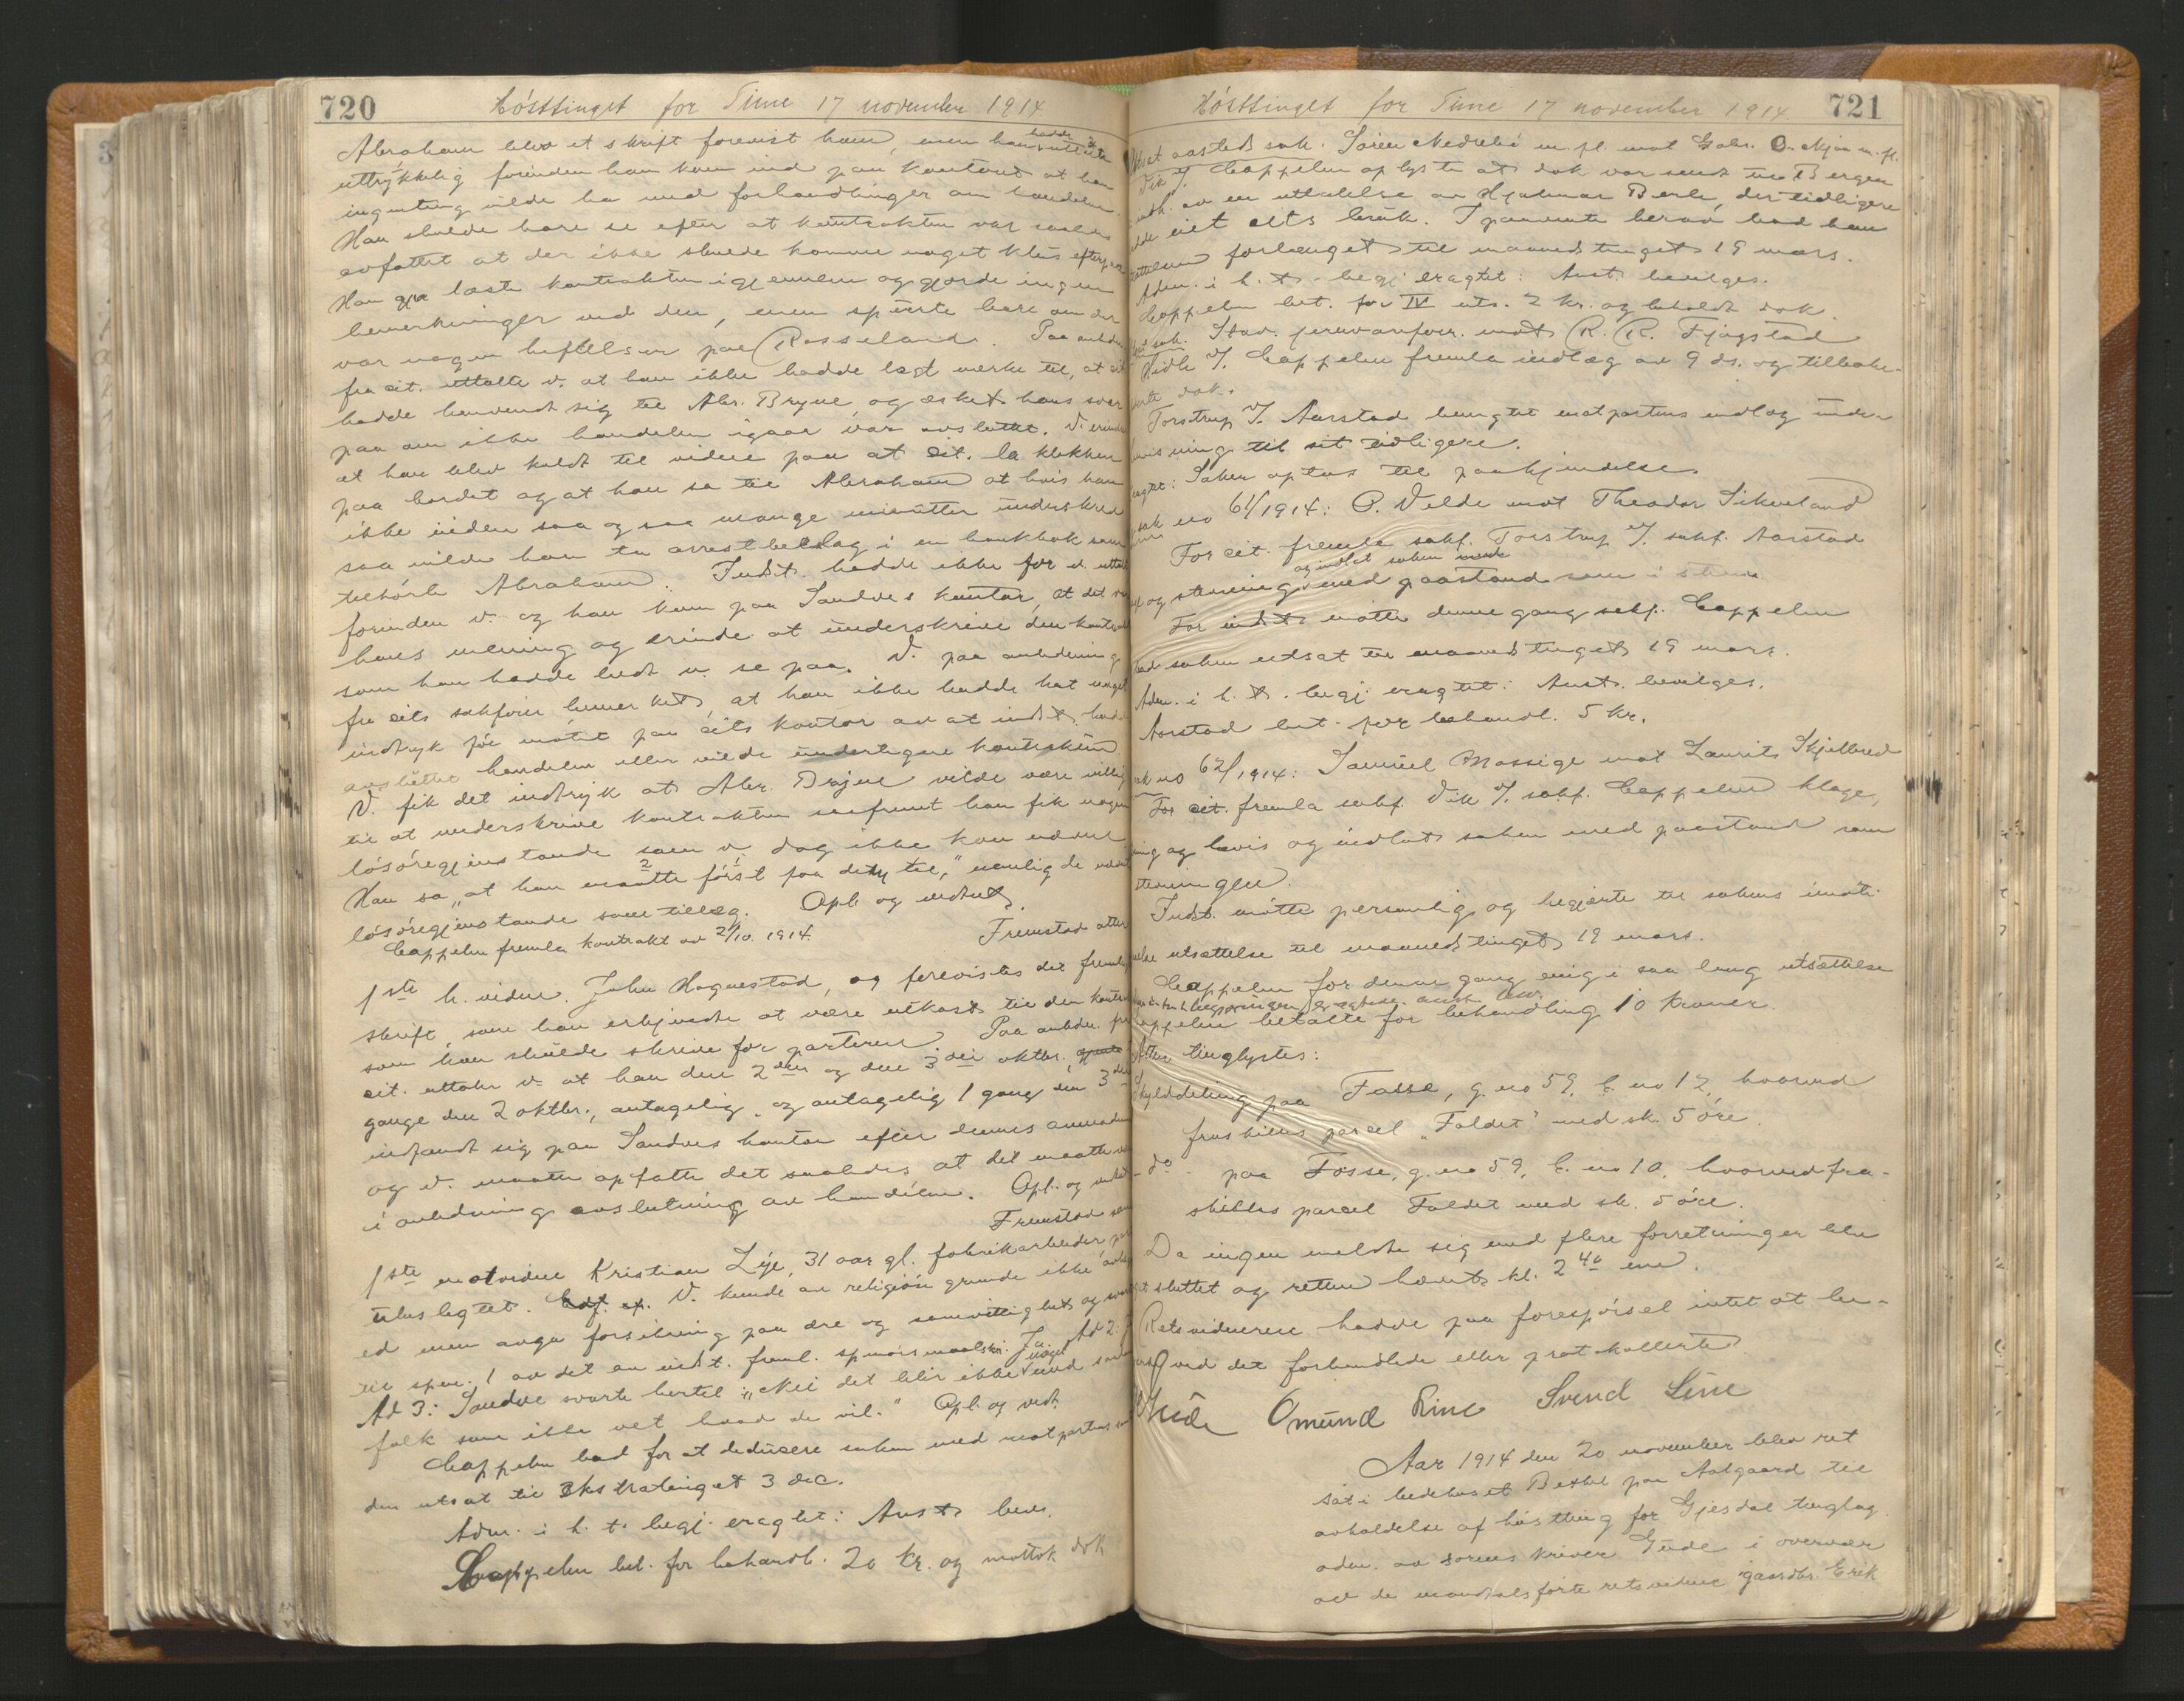 720
Hösttinget for Time 17 november 1914
Abraham blev et skrift forevist ham, men han hadde
uttrykkelig forinden han kom ind paa kontoret at han
ingenting vilde ha med forhandlinger om handelen.
Han skulde bare se efter at kontrakten var saaledes
avfattet at der ikke skulde komme noget klus efterpaa
Han læste kontrakten igjennem og gjorde ingen
bemerkninger ved den, men spurte bare om der
var nogen heftelser paa Rosseland. Paa anledn.
fra cit. uttalte v. at han ikke hadde lagt merke til, at cit
hadde henvendt sig til Abr. Bryne og æsket hans svar
paa om ikke handelen igaar var avsluttet. V. erindr
at han blev kaldt til vidne paa at cit. la klokken
paa bordet og at han sa til Abraham at hvis han
ikke inden saa og saa mange minutter underskrev
saa vilde han ta arrestbeslag i en bankbok som
tilhörte Abraham. Indst. hadde ikke for v. uttalt
forinden v. og han kom paa Sandves kontor, at det var
hans mening og erinde at underskrive den kontrakt
som han hadde bedt v. se paa. V. paa anledning
fra cits sakförer bemerket, at han ikke hadde hat noget
indtryk för mötet paa cits kontor av at indst. hadde
avsluttet handelen eller vilde undertegne kontrakten
V. fik det indtryk at Abr. Bryne vilde være villig
til at underskrive kontrakten saafremt han fik nogen
lösöregjenstande som v. dog ikke kan nævne
Han sa "at han maatte först faa dem til," nemlig de
lösöregjenstande som tillæg. Opl. og vedtat.
Cappelen fremla kontrakt av 2/10. 1914. Fremstod atter
1ste h. vidne. John Hognestad, og forevistes det fremlagte
skrift, som han erkjendte at være utkast til den kontrakt
som han skulde skrive for parterne. Paa anledn. fra
cit. uttaler v. at han den 2den og den 3die oktbr.
gange den 2 oktbr., antagelig, og antagelig 1 gang den 3die
indfandt sig paa Sandves kontor efter dennes anmodn
og v. maatte opfatte det saaledes at det maatte være
i anledning avslutning av handelen. Opl. og vedtat
Fremstod som
1ste motvidne Kristian Lye, 31 aar gl. fabrikarbeider
ubeslegtet. V. kunde av religiöse grunde ikke avlægge
ed men avga forsikring paa ære og samvittighet og svarte
til spm. 1 av det av indst. freml. spörsmaalskr: Ja. Ad 2:
Ad 3: Sandve svarte hertil: "Nei det blir ikke noget ved som
folk som ikke vet hvad de vil." Opl. og vedt.
Cappelen bad for at deducere saken med motpartens
den utsat til Ekstratinget 3 dec.
Adm. i h. t. begj. eragtet: Anst. bev.
Cappelen bet. for behandl. 20 kr. og mottok dok
Hösttinget for Time 17 november 1914 721
Utsat aasteds sak. Sören Nedrebö m. fl. mot Gabr. O. Njaa m. fl.
Vik v/ Cappelen oplyste at dok var sendt til Bergen
indh. av en uttalelse av Hjalmar Berle, der tidligere
eiet cits bruk. I paavente herav bad han
forlænget til maanedstinget 19 mars.
Adm. i h. t. begj eragtet: Anst. bevilges.
Cappelen bet. for IV uts. 2 kr. og beholdt dok.
sak. Stav. preserveringfor. mot R. R. Fjogstad
Vik v/ Cappelen fremla indlæg av 9 ds. og tilbake-
dok.
Torstrup v/ Aarstad benegtet motpartens indlæg under
visning til sit tidligere.
eragtet: Saken optas til paakjendelse.
sak no 61/1914: O. Velde mot Theodor Sikveland
For cit. fremla sakf. Torstrup v/ sakf. Aarstad
og stevning og indlot saken med paastand som i stevn.
For indst mötte denne gang sakf. Cappelen
bad saken utsat til maanedstinget 19 mars.
Adm. i h. t. begj. eragtet: Anst. bevilges.
Aarstad bet. for behandl. 5 kr.
sak no 62/1914: Samuel Mossige mot Laurits Skjelbred
For cit. fremla sakf. Vik v/ sakf. Cappelen klage,
og bevis og indlot saken med paastand som
stevningen.
Indst. mötte personlig og begjærte til sakens imöte-
utsættelse til maanedstinget 19 mars.
Cappelen for denne gang enig i saa lang utsættelse
Cappelen betalte for behandling 10 kroner.
Atter tinglystes:
Skylddeling paa Fosse, g. no 59, b. no 12, hvorved
fraskilles parcel "Faldet" med sk. 5 öre.
- do - paa Fosse, g. no 59, b. no 10, hvorved fra-
skilles parcel Faldet med sk. 5 öre.
Da ingen meldte sig med flere forretninger blev
tinget sluttet og retten hævet kl. 2 40 em.
Retsvidnerne hadde paa forespörsel intet at be-
merke ved det forhandlede eller protokollerte
Gude Omund Line Svend Line
Aar 1914 den 20 november blev ret
sat i bedehuset Betel paa Aalgaard til
avholdelse af hösting for Gjesdal tinglag
adm. av sorenskriver Gude i overvær
av de mandtalsförte retsvidne gaardbr. Erik